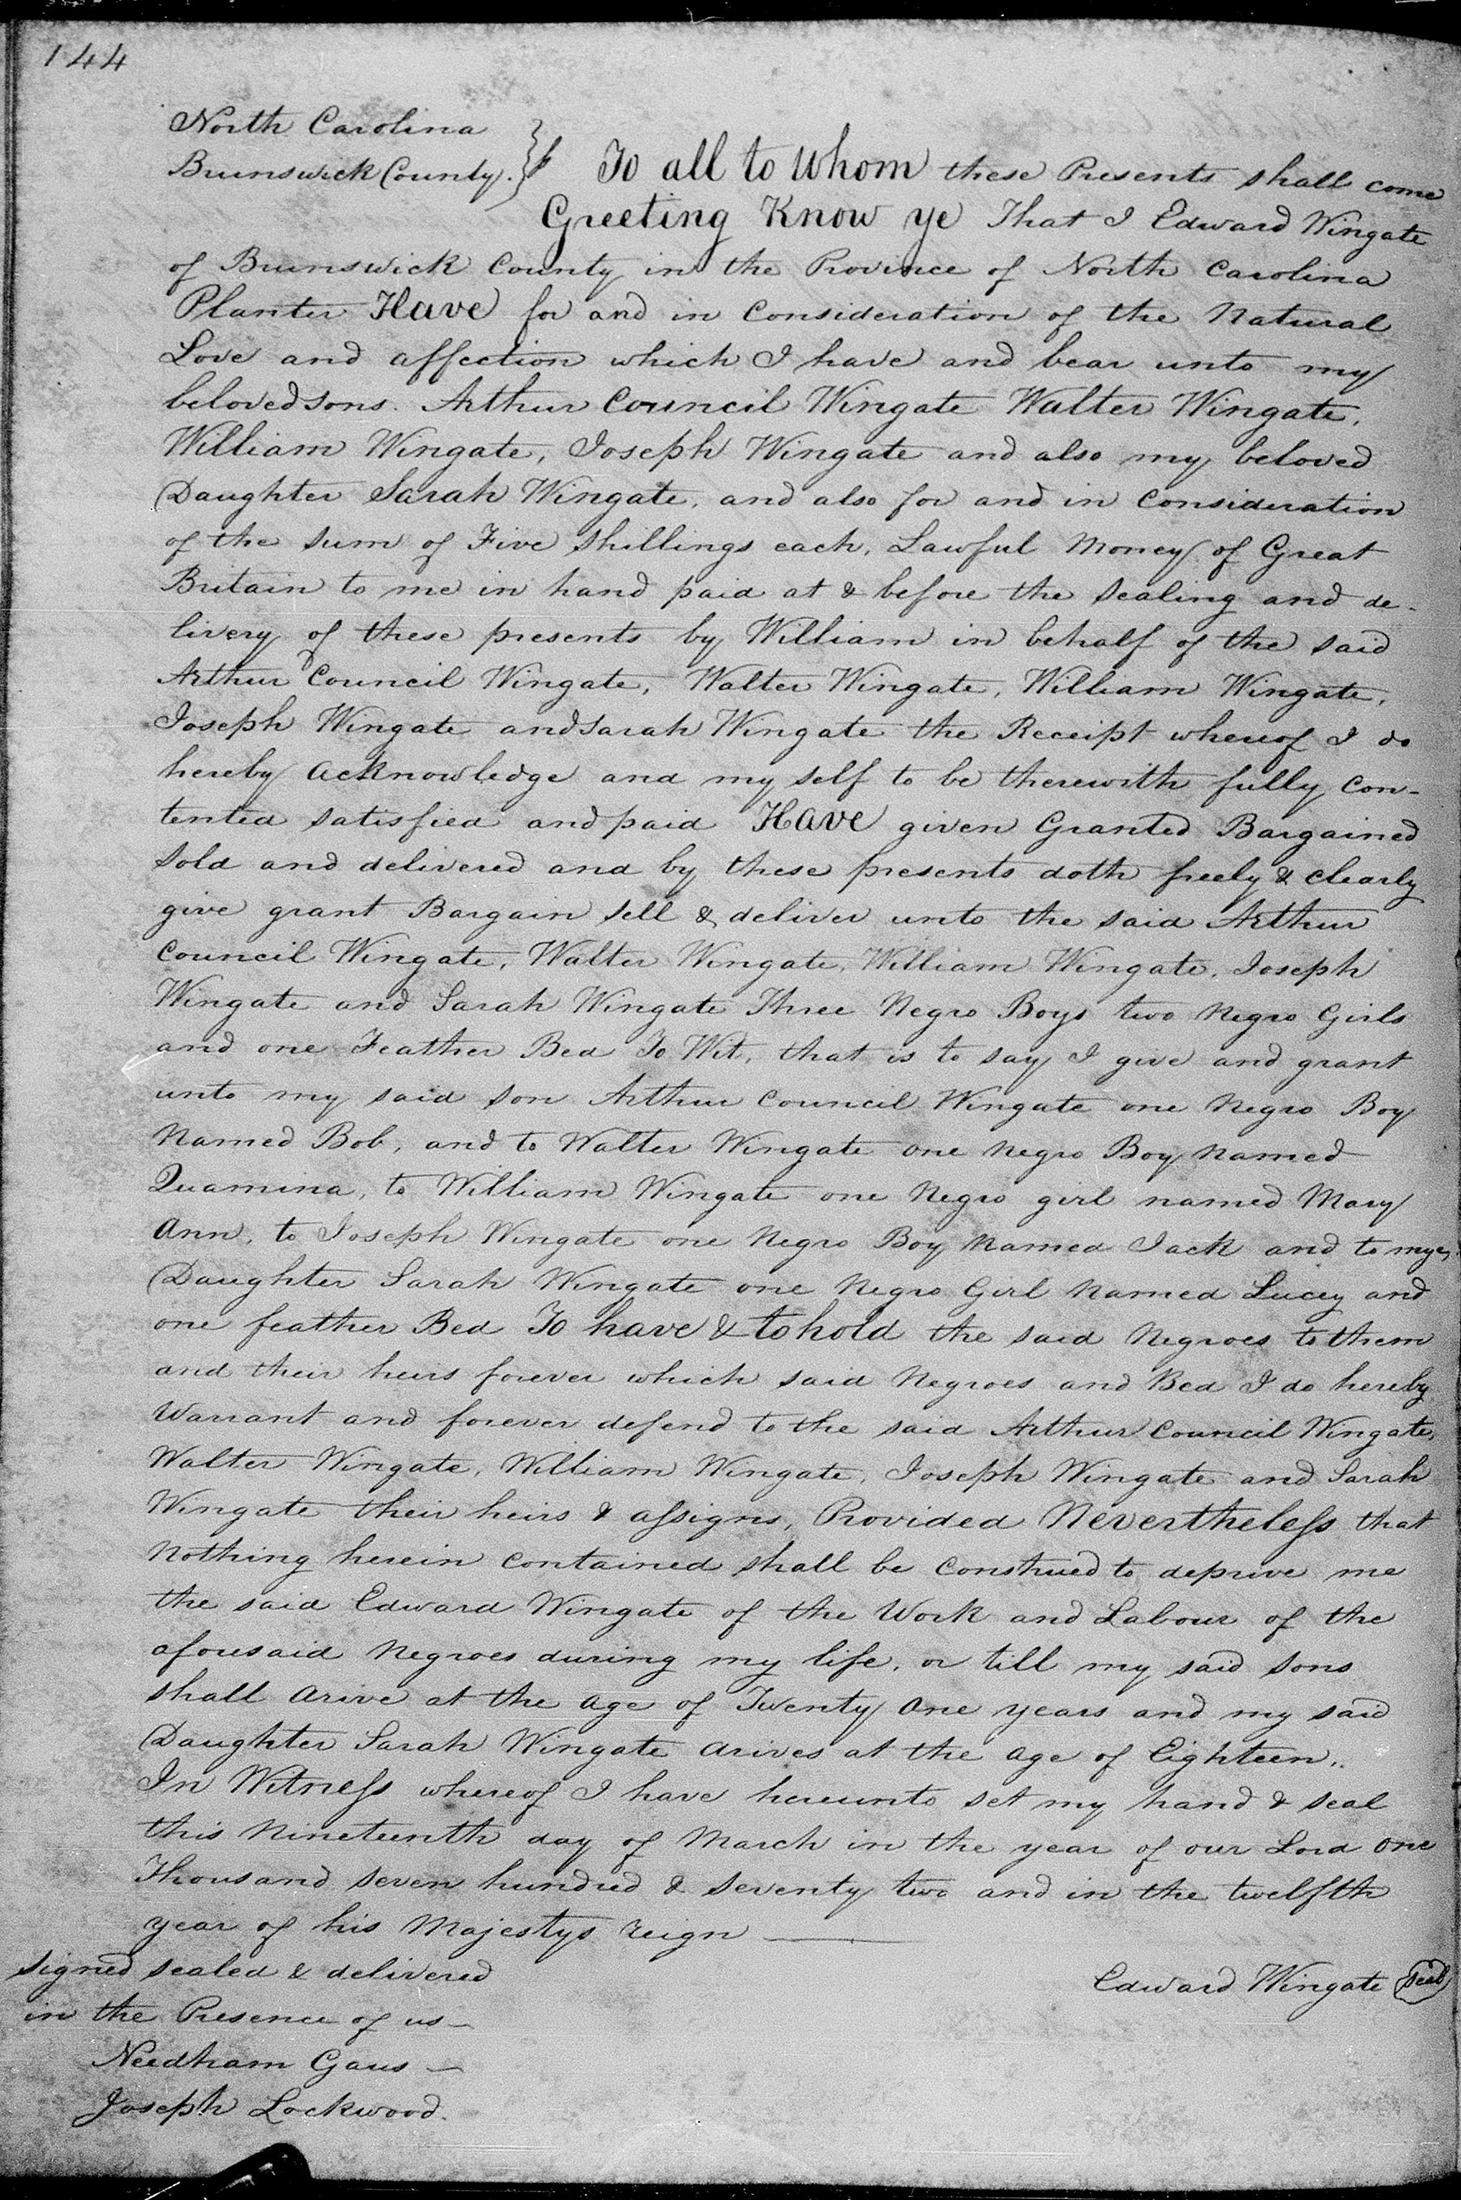 144
North Carolina
Brunswick County.
To all to whom these Presents shall come
Greeting Know ye That I Edward Wingate
of Brunswick County in the Province of North Carolina
Planter Have for and in Consideration of the Natural
Love and affection which I have and bear unto my
beloved sons. Arthur Council Wingate Walter Wingate,
William Wingate, Joseph Wingate and also my beloved
Daughter Sarah Wingate, and also for and in Consideration
of the sum of Five Shillings each, Lawful Money of Great
Britain to me in hand paid at & before the sealing and de-
livery of these presents by William in behalf of the said
Arthur Council Wingate, Walter Wingate, William Wingate,
Joseph Wingate and Sarah Wingate the Receipt whereof I do
hereby acknowledge and my self to be therewith fully con-
tented satisfied and paid Have given Granted Bargained
sold and delivered and by these presents doth freely & clearly
give grant Bargain sell & deliver unto the said Arthur
Council Wingate, Walter Wingate, William Wingate, Joseph
Wingate and Sarah Wingate Three Negro Boys two Negro Girls
and one Feather Bed To Wit, that is to say I give and grant
unto my said son Arthur Council Wingate one Negro Boy
Named Bob, and to Walter Wingate one Negro Boy Named
Quamina, to William Wingate one Negro girl named Mary
Ann, to Joseph Wingate one Negro Boy Named Jack and to my
Daughter Sarah Wingate one Negro Girl Named Lucey and
one feather Bed To have & to hold the said Negroes to them
and their heirs forever which said Negroes and Bed I do hereby
Warrant and forever defend to the said Arthur Council Wingate,
Walter Wingate, William Wingate, Joseph Wingate and Sarah
Wingate their heirs & assigns, Provided Nevertheless that
Nothing herein contained shall be construed to deprive me
the said Edward Wingate of the Work and Labour of the
aforesaid Negroes during my life, or till my said sons
shall arive at the age of Twenty one years and my said
Daughter Sarah Wingate arives at the age of Eighteen..
In Witness whereof I have hereunto set my hand & seal
this Nineteenth day of March in the year of our Lord one
Thousand seven hundred & seventy two and in the twelfth
year of his Majestys reign
signed sealed & delivered
in the Presence of us
Edward Wingate seal
Needham Gaus
Joseph Lockwood.